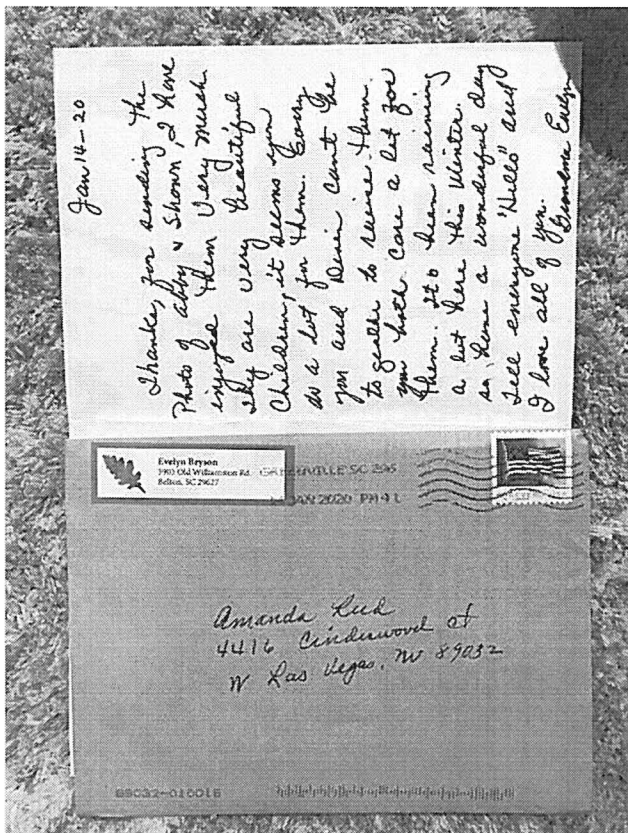 Jan 14-20
Thanks, for sending the
Photo of abby & Shown, I have
injoyed them Very much
They are very beautiful
Children, it seems you
do a lot for them. Sorry
you and Devin cant be
to geather to raise them.
you both care a lot for
them. It's been raining
a lot here this winter.
so, have a wonderful day
Tell everyone "Hello" and
I love all of you.
Evelyn
Evelyn Bryson
3903 Old Williamston Rd.
Belton, SC 29627
GREENVILLE SC 296
JAN 2020 PM 4 L
Amanda
4416 Cinderwood ct
N Las Vegas, NV 89032
89032-010016